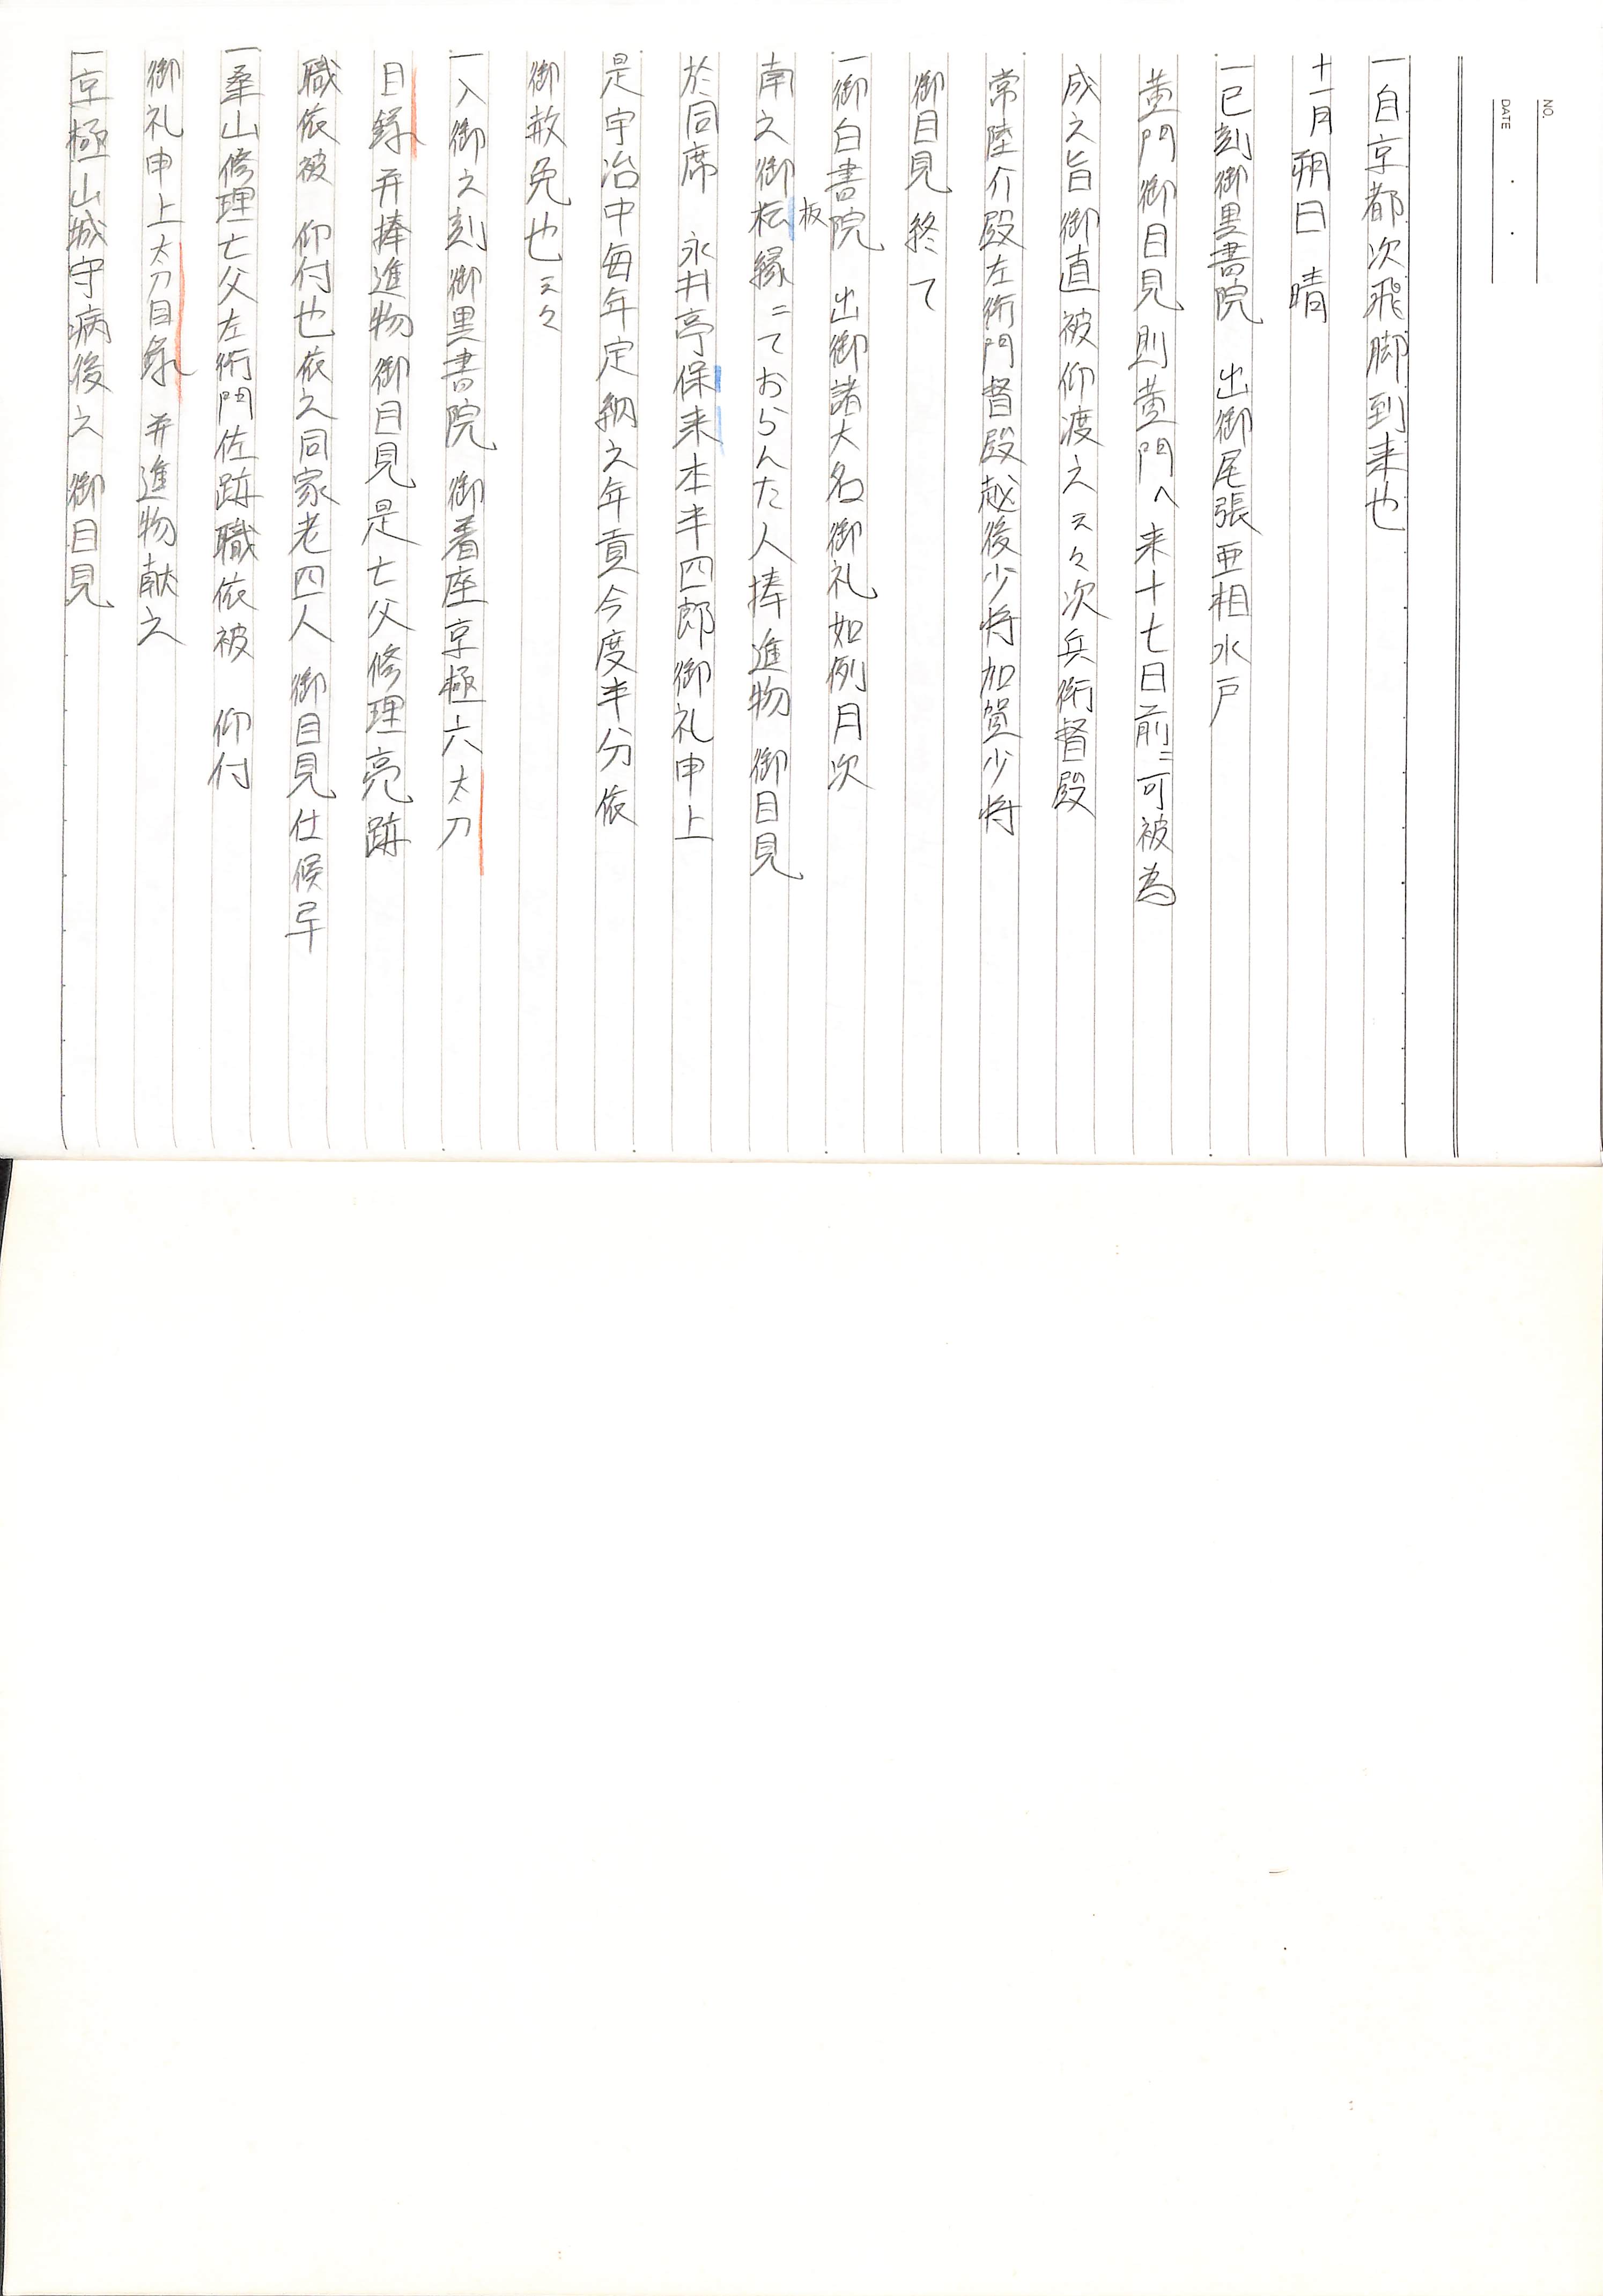 NO.
DATE
一自京都次飛脚到来也
十一月朔日 晴
一巳刻御黒書院 出御尾張亜相水戸
黄門御目見則黄門へ来十七日前ニ可被為
成之旨御直被仰渡之云々次兵衛督殿
常陸介殿左衛門督殿越後少将加賀少将
御目見終て
一御白書院 出御諸大名御礼如例月次
板
南之御枟縁ニておらんた人捧進物 御目見
於同席 永井亭保来本半四郎御礼申上
是宇治中毎年定納之年貢今度半分依
御赦免也云々
一入御之刻御黒書院 御着座京極六太刀
目録并捧進物御目見是亡父修理亮跡
職依被 仰付也依之同家老四人 御目見仕候早
一桑山修理亡父左衛門佐跡職依被 仰付
御礼申上太刀目録 并進物献之
一京極山城守病後之 御目見